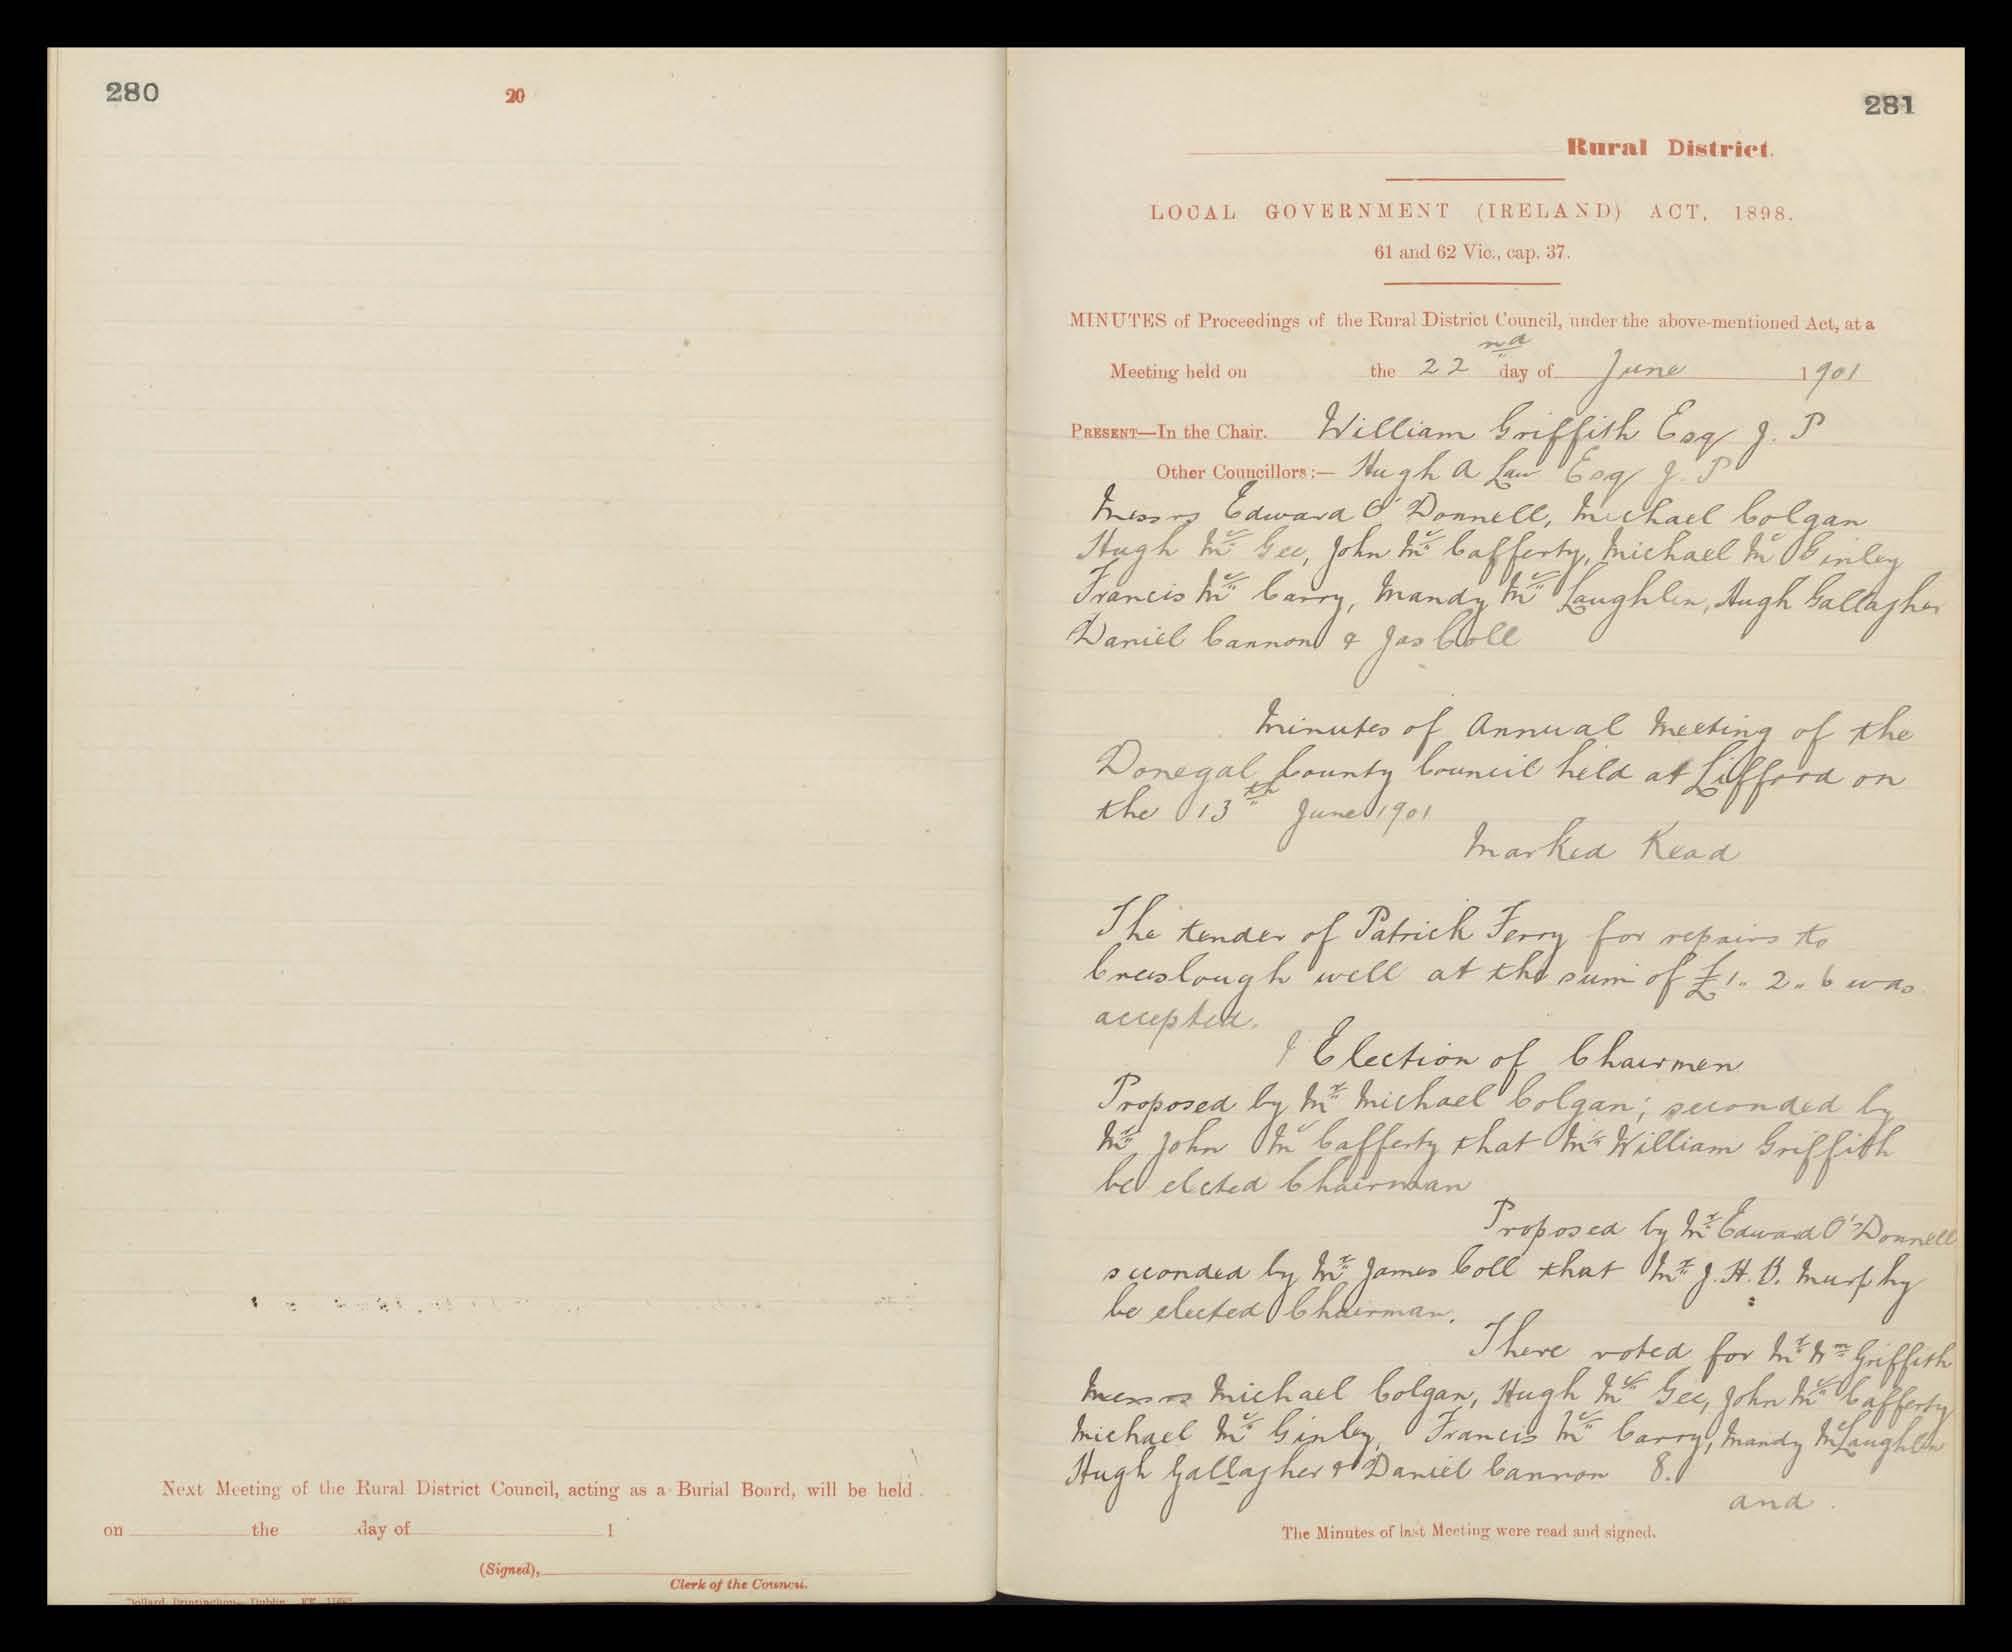 280
20
Next Meeting of the Rural District Council, acting as a Burial Board, will be held
on the day of 1
(Signed),
Clerk of the Council.
281
Rural District.
LOCAL GOVERNMENT (IRELAND) ACT, 1898.
61 and 62 Vic., cap. 37.
MINUTES of Proceedings of the Rural District Council, under the above-mentioned Act, at a
Meeting held on the 22nd day of June 1901
PRESENT—In the Chair. William Griffith Esq J. P
Other Councillors:— Hugh A Law Esq J. P
Messrs Edward O'Donnell, Michael Colgan
Hugh Mc Gee, John Mc Cafferty, Michael Mc Ginley
Francis Mc Carry, Mandy Mc Laughlin, Hugh Gallagher
Daniel Cannon & Jas Coll
Minutes of Annual Meeting of the
Donegal County Council held at Lifford on
the 13th June 1901
Marked Read
The tender of Patrick Ferry for repairs to
Creeslough well at the sum of £1.. 2.. 6 was
accepted.
Election of Chairmen
Proposed by Mr Michael Colgan; seconded by
Mr John Mc Cafferty that Mr William Griffith
be elected Chairman
Proposed by Mr Edward O'Donnell
seconded by Mr James Coll that Mr J. H. B. Murphy
be elected Chairman.
There voted for Mr Wm Griffith
Messrs Michael Colgan, Hugh Mc Gee, John Mc Cafferty
Michael Mc Ginley, Francis Mc Carry, Mandy McLaughlin
Hugh Gallagher & Daniel Cannon 8.
and
The Minutes of last Meeting were read and signed.